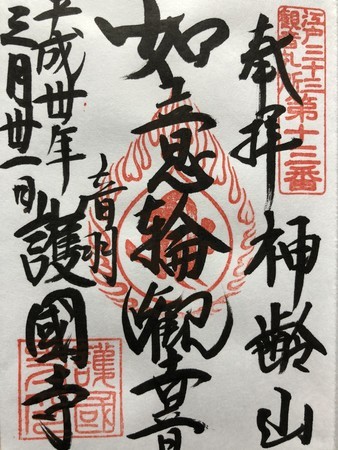 江戸三十三
観音札所
第十三番
奉拝 神齢山
如意輪観音
音羽
護國寺
平成卅年
三月卅一日
護國